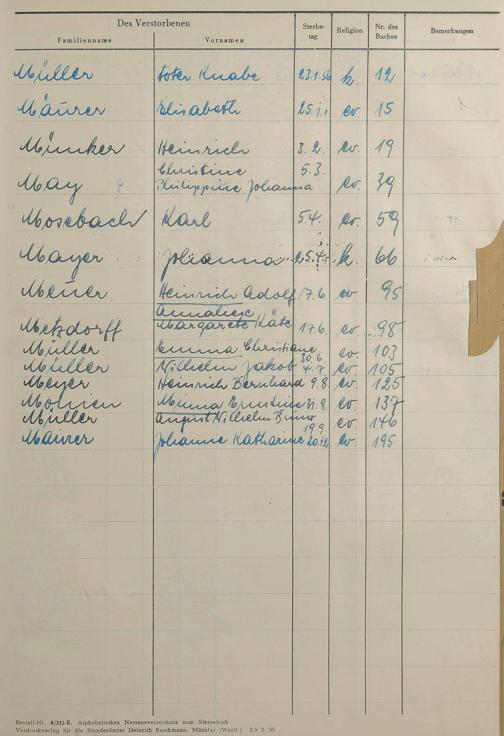 Des Verstorbenen
Familienname Vornamen Sterbe-tag Religion Nr. des Buches Bemerkungen
Müller toter Knabe 23.1.56 k. 12
Maurer Elisabeth 25.1. ev. 15
Münker Heinrich 3.2. ev. 19
Christine 5.3.
May Philippine Johanna ev. 39
Mosebach Karl 5.4. ev. 59
Mayer Johanna 25.4. k. 66
Heinrich Adolf 17.6. ev 95
Annaliese
Metzdorff Margarete Käte 17.6. ev. 98
Müller Emma Christiane 30.6. ev. 103
Müller Wilhelm Jakob 4.7. ev. 105
Meyer Heinrich Bernhard 9.8. ev. 125
Minna Ernstine 31.8. ev. 137
Müller August Wilhelm 19.9. ev. 146
Maurer Johanne Katharine 20.12. ev. 195
Bestell-Nr. 8/315 E. Alphabetisches Namensverzeichnis zum Sterbebuch
Verdruckverlag für die Standesämter Heinrich Buschmann, Münster (Westf.)